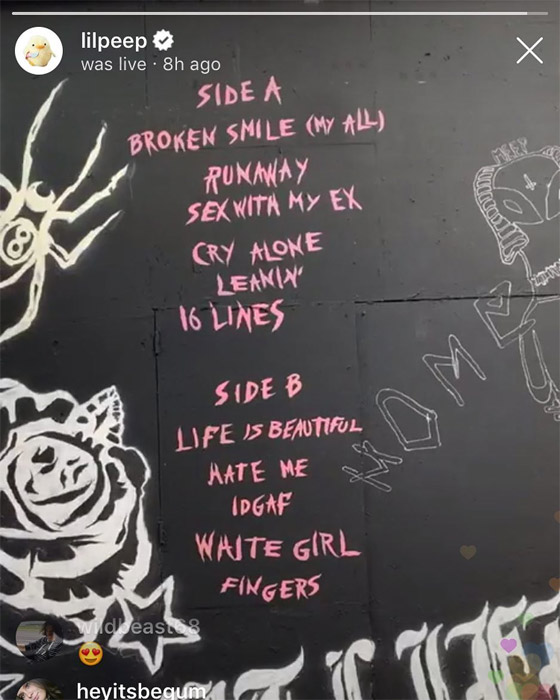 lilpeep
was live · 8h ago
SIDE A
BROKEN SMILE (MY ALL)
RUNAWAY
SEX WITH MY EX
CRY ALONE
LEANIN'
16 LINES
SIDE B
LIFE IS BEAUTIFUL
HATE ME
IDGAF
WHITE GIRL
FINGERS
8
wildbeast68
😍
heyitsbegum